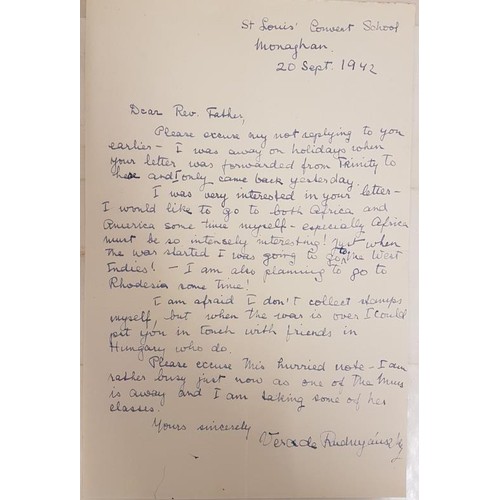 St Louis' Convert School
Monaghan.
20 Sept. 1942
Dear Rev. Father,
Please excuse my not replying to you
earlier - I was away on holidays when
your letter was forwarded from Trinity to
here and I only came back yesterday.
I was very interested in your letter -
I would like to go to both Africa and
America some time myself - especially Africa
must be so intensely interesting! Just when
the war started I was going to the West
Indies! - I am also planning to go to
Rhodesia some time!
I am afraid I don't collect stamps
myself, but when the war is over I could
put you in touch with friends in
Hungary who do.
Please excuse this hurried note - I am
rather busy just now as one of the Nuns
is away and I am taking some of her
classes.
Yours sincerely
Vera de